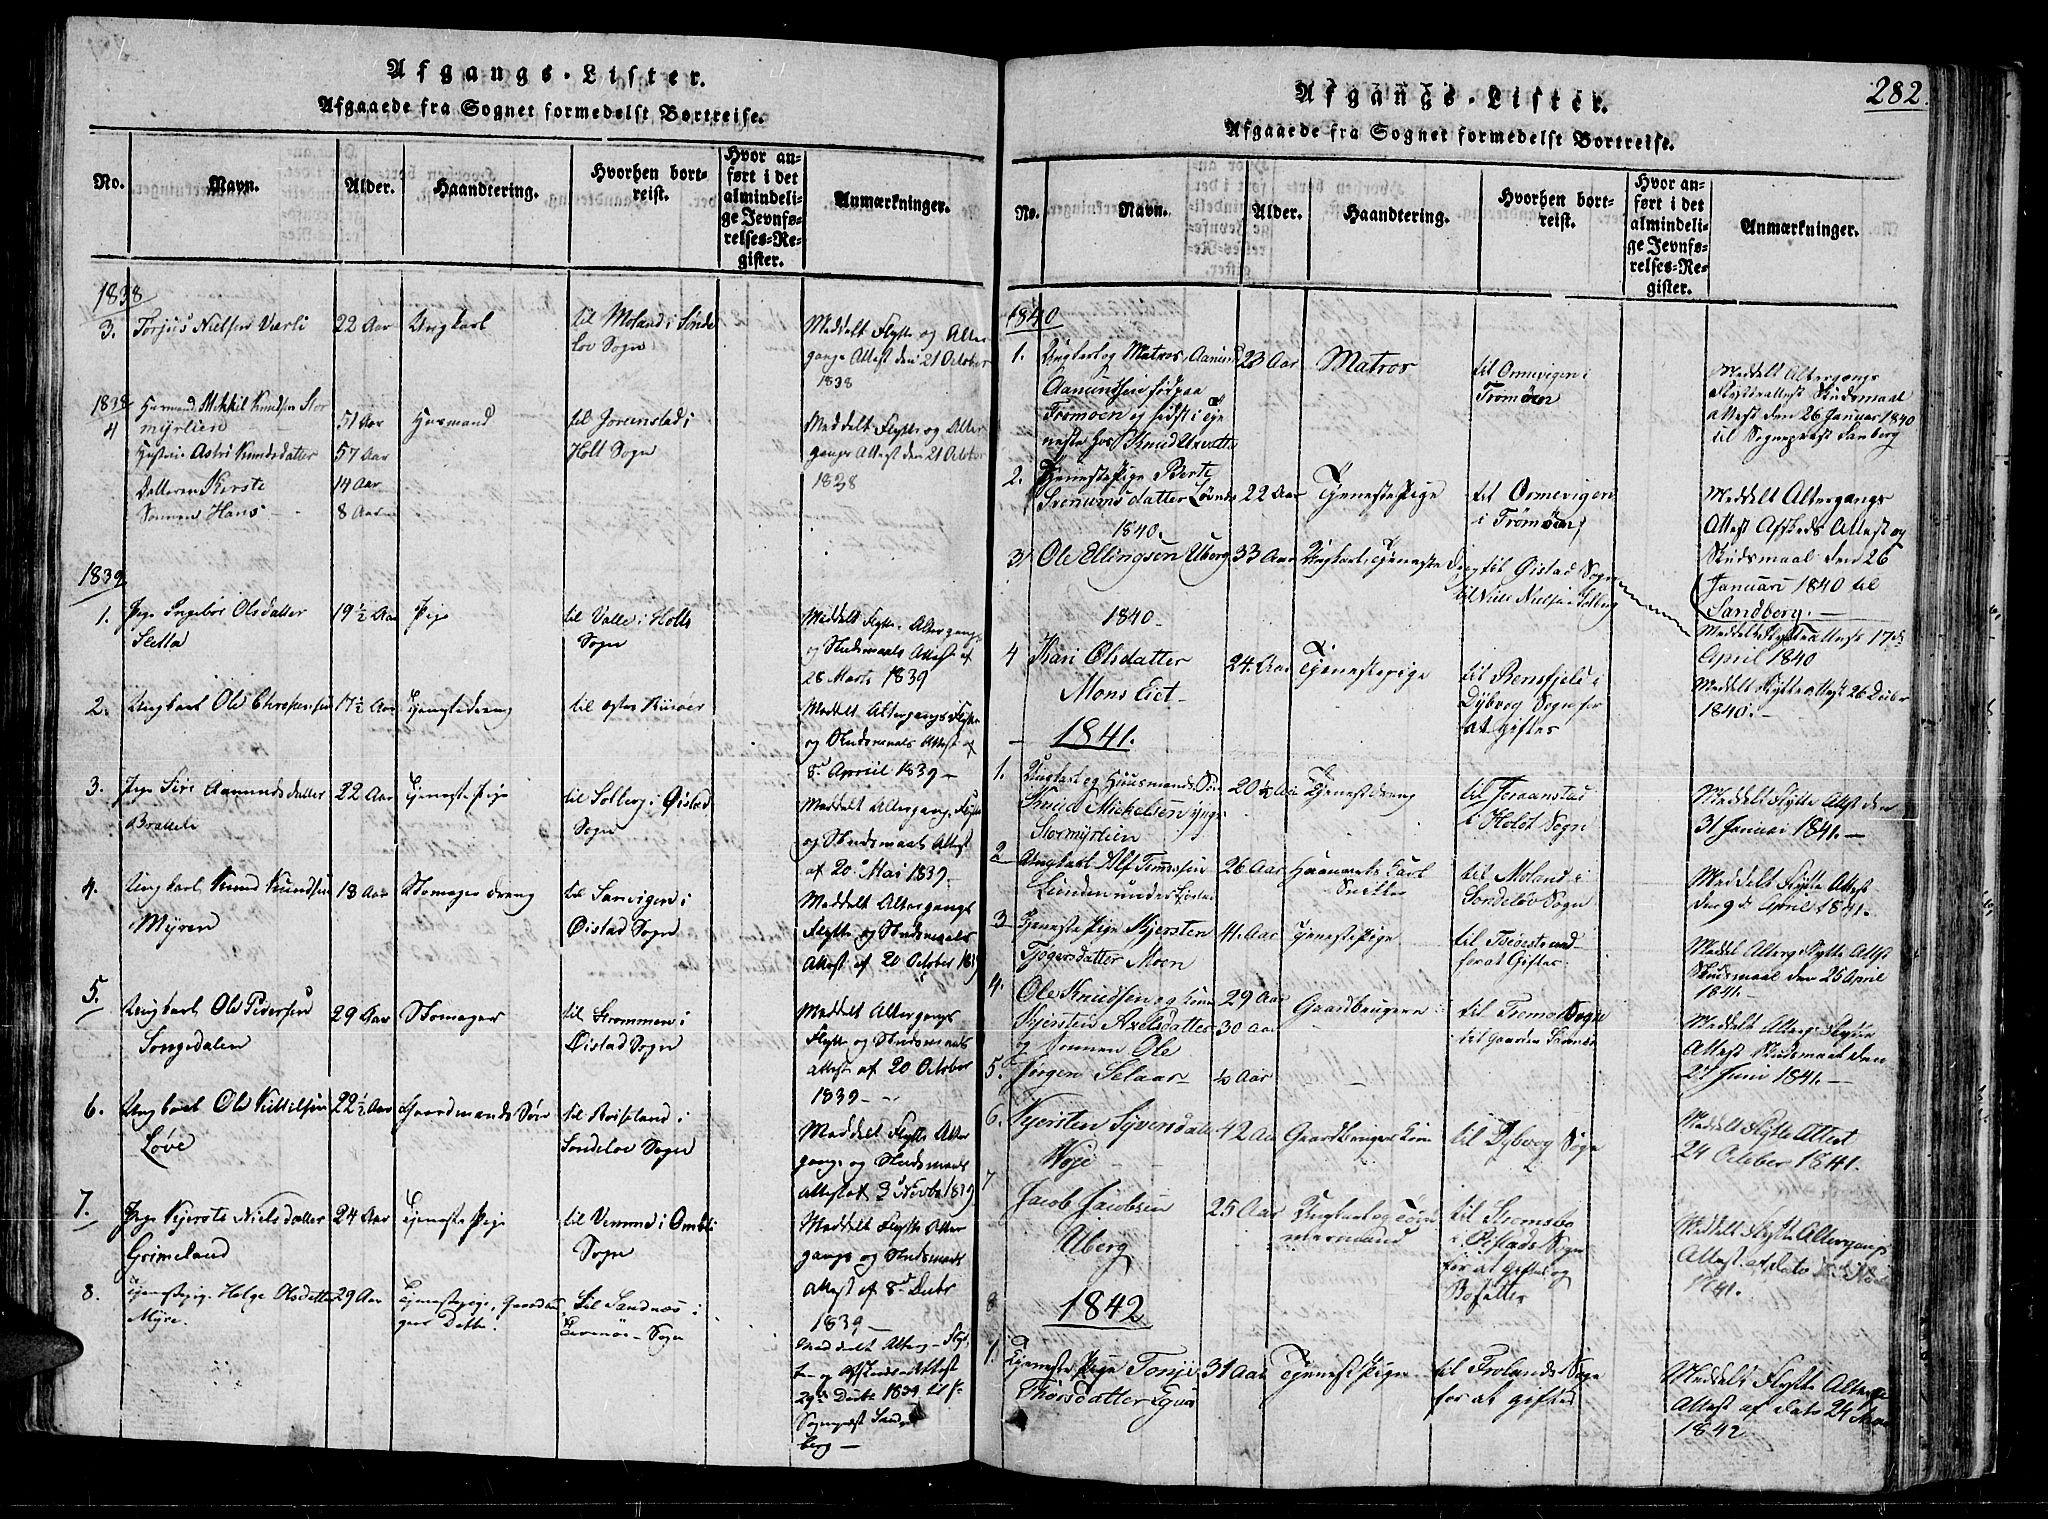 Afgangs-Lister.
Afgaaede fra Sognet formedelst Bortreise.
No.
Navn.
Alder.
Haandtering.
Hvorhen bort-
reist.
Hvor an-
ført i det
almindeli-
ge Jevnfø-
relses-Re-
gister.
Anmærkninger.
1838
3. Torjus Nielsen Værli 22 Aar Ungkarl til Moland i Sønde
løv Sogn
Meddelt Flytte og Alter
gangs Attest den 21 October
1838
1838
4 Huusmand Mikkil Knudsen Stor
myrlien 51 Aar Husmand til Joranstad i
Holt Sogn
Meddelt Flytte og Alter
gangs Attest den 21 October
1838
Astri Knudsdatter 57 Aar
Datteren Kirste 14 Aar
Sønnen Hans 8 Aar
1839
1. Pige Ingebor Olsdatter
Sletta 19½ Aar Pige til Valle i Holts
Sogn
Meddelt Flytte, Altergangs
og Skudsmaals Attest af
28 Marts 1839
2. Ungkarl Ole Christensen 17½ Aar Tjenestedreng til Øster Riisøer
Meddelt Altergangs Flytte
og Skudsmaals Attest af
8d Apriil 1839
3. Pige Siri Aamundsdatter
Brattele 22 Aar Tjeneste Pige til Solberg i Øistad
Sogn
Meddelt Altergangs Flytte
og Skudsmaals Attest
af 20 Mai 1839
4. Ungkarl Knud Knudsen
Myren 18 Aar Skomager dreng til Sanvigen i
Øistad Sogn
Meddelt Altergangs
Flytte og Skudsmaals
Attest af 20 October 1839
5. Ungkarl Ole Pedersen
Songedalen 29 Aar Skomager til Strømmen i
Øistad Sogn
Meddelt Altergangs
Flytte og Skudsmaals
Attest af 20 October
1839
6. Ungkarl Ole Kittilsen
Løve 22½ Aar Gaardmands Søn til Roiseland i
Søndeløv Sogn
Meddelt Flytte Alter
gangs og Skudsmaals
Attest af 3d Novbr 1839
7. Pige Kjerste Nielsdatter
Grimeland 24 Aar Tjeneste Pige til Vemund i Omli
Sogn
Meddelt Flytte Alter
gangs og Skudsmaals
Attest af 8d Decbr
1839
8. Tjenestepige Helge Olsdatter
Myre. 29 Aar Tjenestepige, Gaardbru
gers Datter. til Sandnæs i
Tromøe Sogn
Meddelt Alterg. Flyt
te og Afskeds Attest
29de Decbr 1839 til
Sogneprest Sand
berg
282.
Afgangs-Lister.
Afgaaede fra Sognet formedelst Bortreise.
No.
Navn.
Alder.
Haandtering.
Hvorhen bort-
reist.
Hvor an-
ført i det
almindeli-
ge Jevnfø-
relses-Re-
gister.
Anmærkninger.
1840
1. Ungkarl og Matros, Aamund
Aamundsen født paa
Tromøen og sidst i tje
neste hos Knud
23 Aar Matros til Ormevigen i
Tromøen
Meddelt Altergangs
Flytteattest Skudsmaal
attest den 26 Januar 1840
til Sogneprest Sanberg
2. Tjeneste Pige Berte
Simunsdatter Løvnes 22 Aar Tjeneste Pige til Ormevigen
i Tromøen
Meddelt Altergangs
Attest Afskeds Attest og
Skudsmaal den 26
Januari 1840 til
Sandberg.
1840.
3 Ole Ellingsen Uberg 33 Aar Ungkarl, Tjeneste Dreng til Øistad Sogn
til Niels Nielsen Solberg
Meddelt Flytteattest 17de
April 1840
1840
4 Kari Olsdatter
Mons Eiet 24 Aar Tjenestepige til Bensfjeld i
Dybvog Sogn for
at giftes
Meddelt Flytte attest 26 Decbr
1840.
1841.
1. Ungkarl og Huusmands Søn
Knud Mickelsen yngr
Stormyrlien 20½ Aar Tjenestdreng til Joraanstad
i Holdt Sogn
Meddelt Flytte Attest den
31 Januari 1841.
2 Ungkarl Alf Simonsen
Lienden under 26 Aar til Moland i
Søndeløv Sogn
Meddelt Flytte Attest
den 9d April 1841.
3 Tjeneste Pige Kjersten
Tjøgersdatter Moen 41 Aar Tjeneste Pige til Tvedestrand
for at Giftes
Meddelt Alterg Flytte Attest
Skudsmaal den 25 April
1841.
4. Ole Knudsen og Kone
Kjersten Axelsdatter
og Sønnen Ole
29 Aar
30 Aar
Gaardbrugeren til Tromø Sogn
til Gaarden
Meddelt Alterg. Flytte
Attest Skudsmaal den
27 Juni 1841.
5. Jørgen Selaas ½ Aar
6. Kjersten Syvendatter
Voje 42 Aar Gaardbruger Kone til Dybvog Sogn
Meddelt Flytte Attest
24 October 1841.
7 Jacob Jacobsen
Uberg 25 Aar Ungkarl og Tøm
mermand til Stromsbo
i Øistads Sogn
for at Giftes og
Bosætter
Meddelt Flytte Altergangs
Attest af dato
1841.
8
1842
1. Tjeneste Pige Tonje
Thorsdatter 31 Aar Tjenest Pige til Frolands Sogn
for at giftes
Meddelt Flytte Altergs
Attest af dato 24
1842